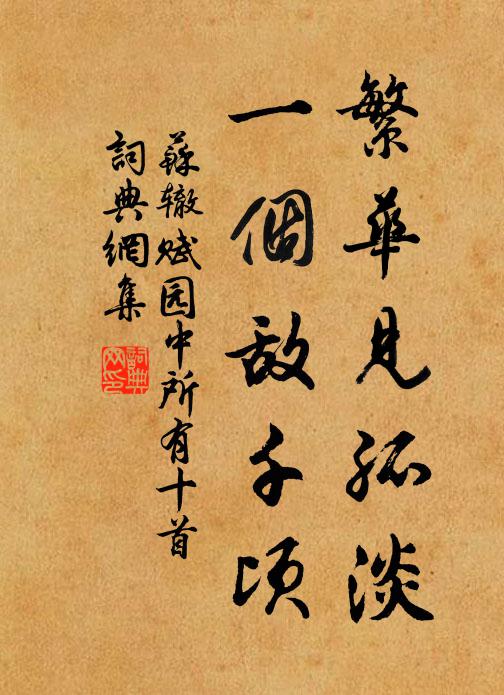 繁華見孤淡
一個敵千頃
蘇辙赋园中所有十首
詞典網集
詞典网印